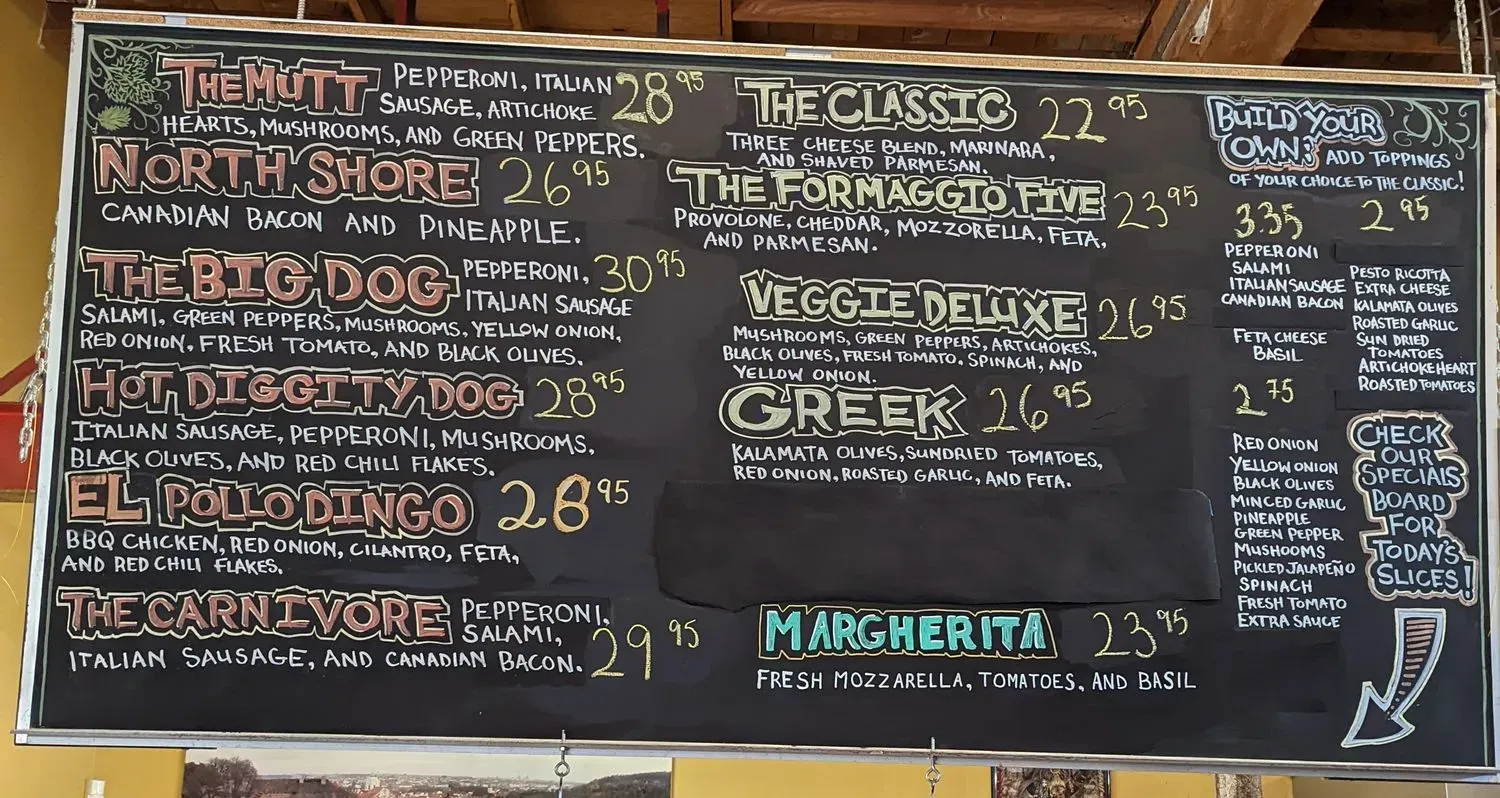 THE MUTT PEPPERONI, ITALIAN 28 95
SAUSAGE, ARTICHOKE
HEARTS, MUSHROOMS, AND GREEN PEPPERS.
NORTH SHORE 26 95
CANADIAN BACON AND PINEAPPLE.
THE BIG DOG PEPPERONI, 30 95
ITALIAN SAUSAGE
SALAMI, GREEN PEPPERS, MUSHROOMS, YELLOW ONION,
RED ONION, FRESH TOMATO, AND BLACK OLIVES.
HOT DIGGITY DOG 28 95
ITALIAN SAUSAGE, PEPPERONI, MUSHROOMS,
BLACK OLIVES, AND RED CHILI FLAKES.
EL POLLO DINGO 28 95
BBQ CHICKEN, RED ONION, CILANTRO, FETA,
AND RED CHILI FLAKES.
THE CARNIVORE PEPPERONI,
SALAMI, 29 95
ITALIAN SAUSAGE, AND CANADIAN BACON.
THE CLASSIC 22 95
THREE CHEESE BLEND, MARINARA,
AND SHAVED PARMESAN.
THE FORMAGGIO FIVE 23 95
PROVOLONE, CHEDDAR, MOZZORELLA, FETA,
AND PARMESAN.
VEGGIE DELUXE 26 95
MUSHROOMS, GREEN PEPPERS, ARTICHOKES,
BLACK OLIVES, FRESH TOMATO. SPINACH, AND
YELLOW ONION.
GREEK 26 95
KALAMATA OLIVES, SUNDRIED TOMATOES,
RED ONION, ROASTED GARLIC, AND FETA.
MARGHERITA 23 95
FRESH MOZZARELLA, TOMATOES, AND BASIL
BUILD YOUR
OWN: ADD TOPPINGS
OF YOUR CHOICE TO THE CLASSIC!
3.35
PEPPERONI
SALAMI
ITALIAN SAUSAGE
CANADIAN BACON
FETA CHEESE
BASIL
2 75
RED ONION
YELLOW ONION
BLACK OLIVES
MINCED GARLIC
PINEAPPLE
GREEN PEPPER
MUSHOOMS
PICKLED JALAPEÑO
SPINACH
FRESH TOMATO
EXTRA SAUCE
2 95
PESTO RICOTTA
EXTRA CHEESE
KALAMATA OLIVES
ROASTED GARLIC
SUN DRIED
TOMATOES
ARTICHOKE HEART
ROASTED TOMATOES
CHECK
OUR
SPECIALS
BOARD
FOR
TODAY'S
SLICES!